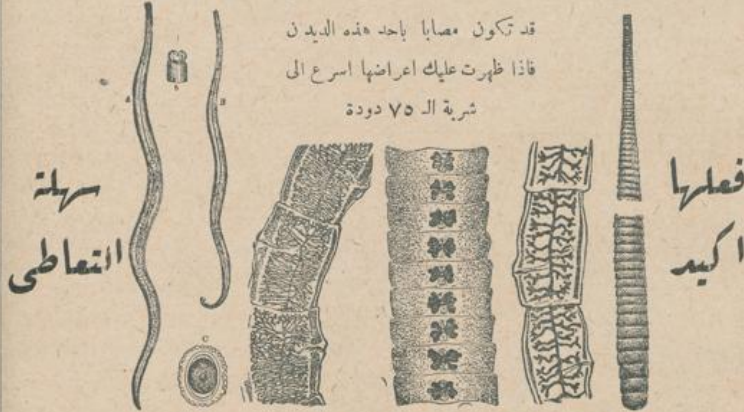 قد تكون مصابا باحد هذه الديدن
فاذا ظهرت عليك اعراضها اسرع الى
شربة الـ ٧٥ دودة
فعلها
اكيد
سهلة
التعاطى
A
B
C